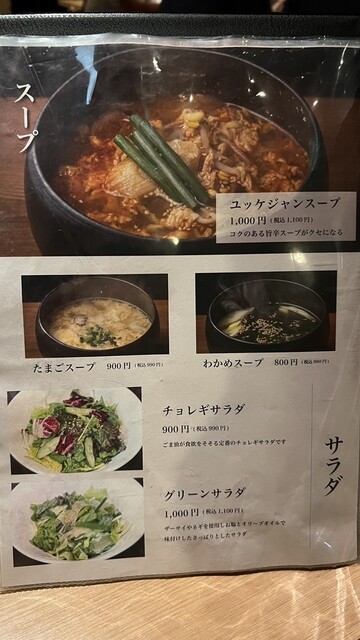 スープ
ユッケジャンスープ
1,000円（税込1,100円）
コクのある旨辛スープがクセになる
たまごスープ 900円（税込990円）
わかめスープ 800円（税込880円）
チョレギサラダ
900円（税込990円）
ごま油が食欲をそそる定番のチョレギサラダです
グリーンサラダ
1,000円（税込1,100円）
ザーサイやネギを使用しお塩とオリーブオイルで
味付けしたさっぱりとしたサラダ
サラダ